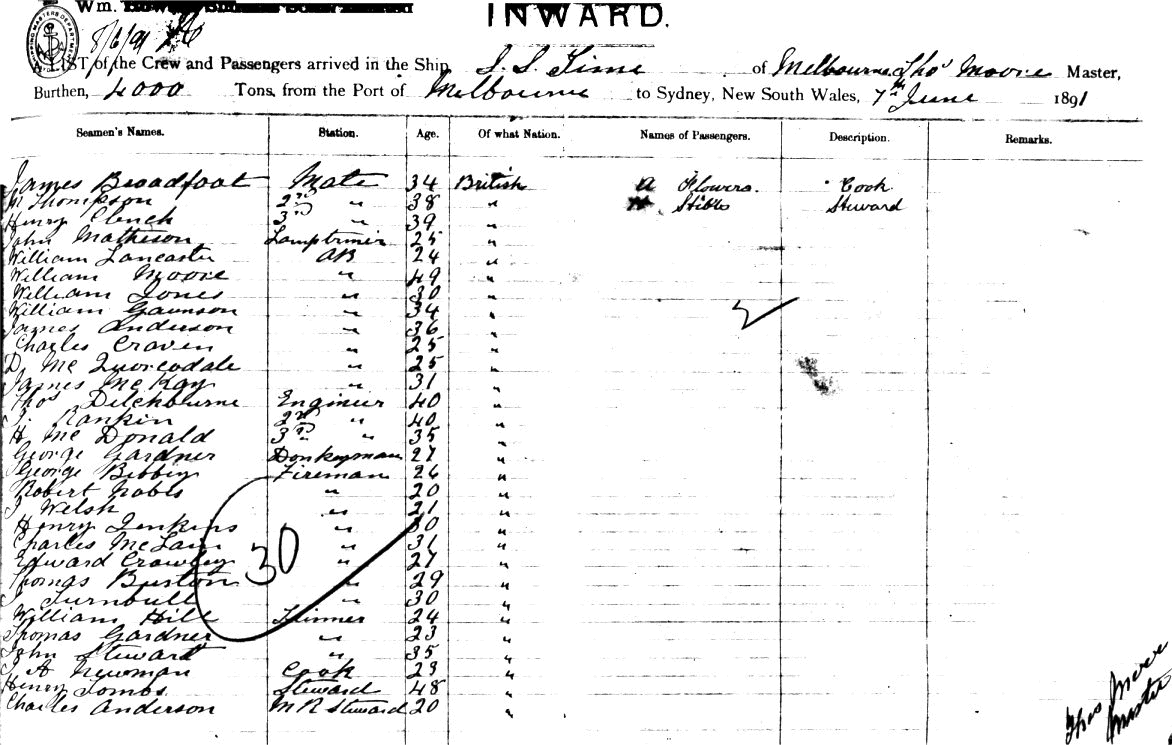 Wm.
INWARD.
8/6/91
A LIST of the Crew and Passengers arrived in the Ship, S. S. Time of Melbourne, Thos Moore Master,
Burthen, 4000 Tons, from the Port of Melbourne to Sydney, New South Wales, 7th June 1891
Seamen's Names. Station. Age. Of what Nation. Names of Passengers. Description. Remarks.
James Broadfoot Mate 34 British A Flowers. Cook
Thompson 2nd " 38 " Stibbs Steward
Henry Clench 3rd " 39 "
John Matheson Lamptrimer 25 "
William Lancaster AB 24 "
William Moore " 49 "
William Jones " 30 "
William Gaunson " 34 "
James Anderson " 36 "
Charles Craven " 25 "
D. Mc " 25 "
James McKay " 31 "
Thos Engineer 40 "
Rankin 2nd " 40 "
H McDonald 3rd " 35 "
George Gardner Donkeyman 27 "
George Bibby Fireman 26 "
Robert " 20 "
J Welsh " 21 "
Henry Jenkins " 30 "
Charles " 31 "
Edward Crowley " 27 "
30
Thomas Burton " 29 "
Turnbull " 30 "
William Hill 24 "
Thomas Gardner " 23 "
John Stewart " 35 "
J A Newman Cook 23 "
Henry Tombs Steward 48 "
Charles Anderson M R Steward 20 "
2
Thos Moore
Master